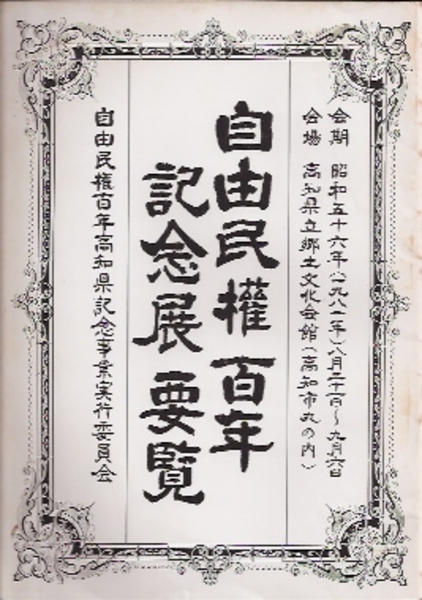 会期 昭和五十六年(一九八一年)八月二十一日～九月六日
会場 高知県立郷土文化会館(高知市丸の内)
自由民權百年
記念展要覧
自由民權百年高知県記念事業実行委員会